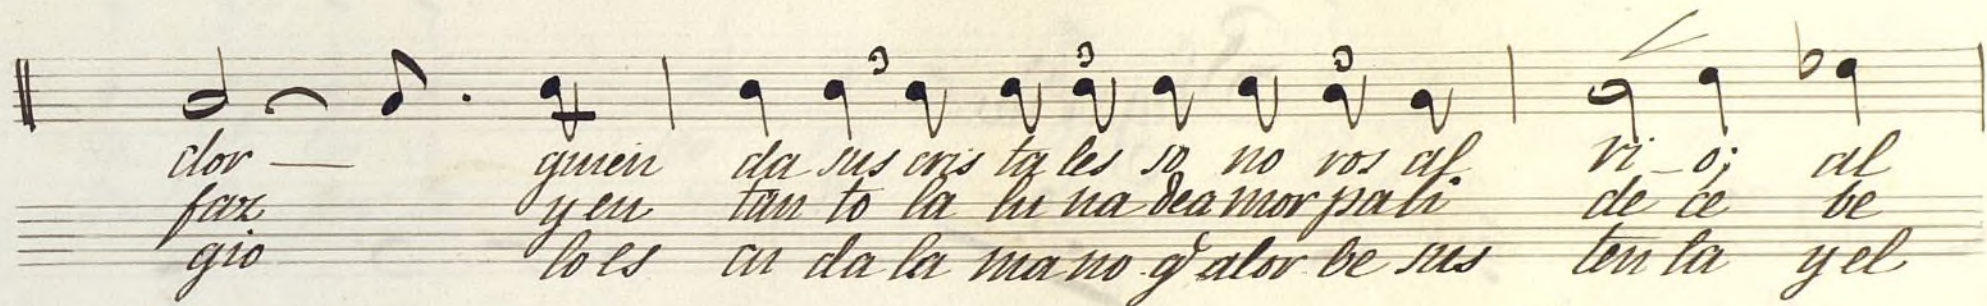 dor — quien da sus cris ta les so no ros al ri - o; al
faz y en tan to la lu na de a mor pa li de ce be
gio lo es cu da la ma no q.e al or be sus ten ta y el